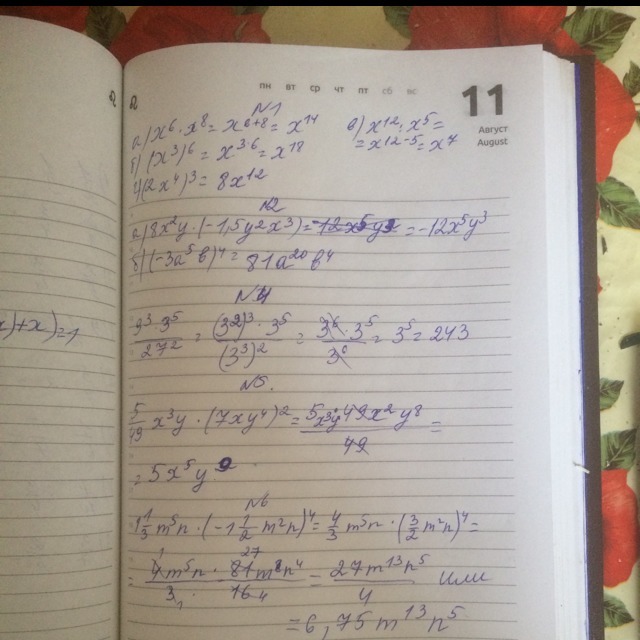 пн вт ср чт пт сб вс
11
Август
August
N1
а) x⁶·x⁸=x⁶⁺⁸=x¹⁴
в) x¹²:x⁵=
=x¹²⁻⁵=x⁷
б) (x³)⁶=x³·⁶=x¹⁸
г) (2x⁴)³=8x¹²
N2
а) 8x²y·(-1,5y²x³)=-12x⁵y³=-12x⁵y³
б) (-3a⁵b)⁴=81a²⁰b⁴
N4
9³·3⁵/27²=(3²)³·3⁵/(3³)²=3⁶·3⁵/3⁶=3⁵=243
x)+x)=1
N5.
5/49 x³y·(7xy⁴)²=5x³y·49x²y⁸/49=
=5x⁵y⁹
N6
1 1/3 m⁵n·(-1 1/2 m²n)⁴=4/3 m⁵n·(3/2 m²n)⁴=
=4m⁵n·81m⁸n⁴/3·16=27m¹³n⁵/4 или
=6,75m¹³n⁵